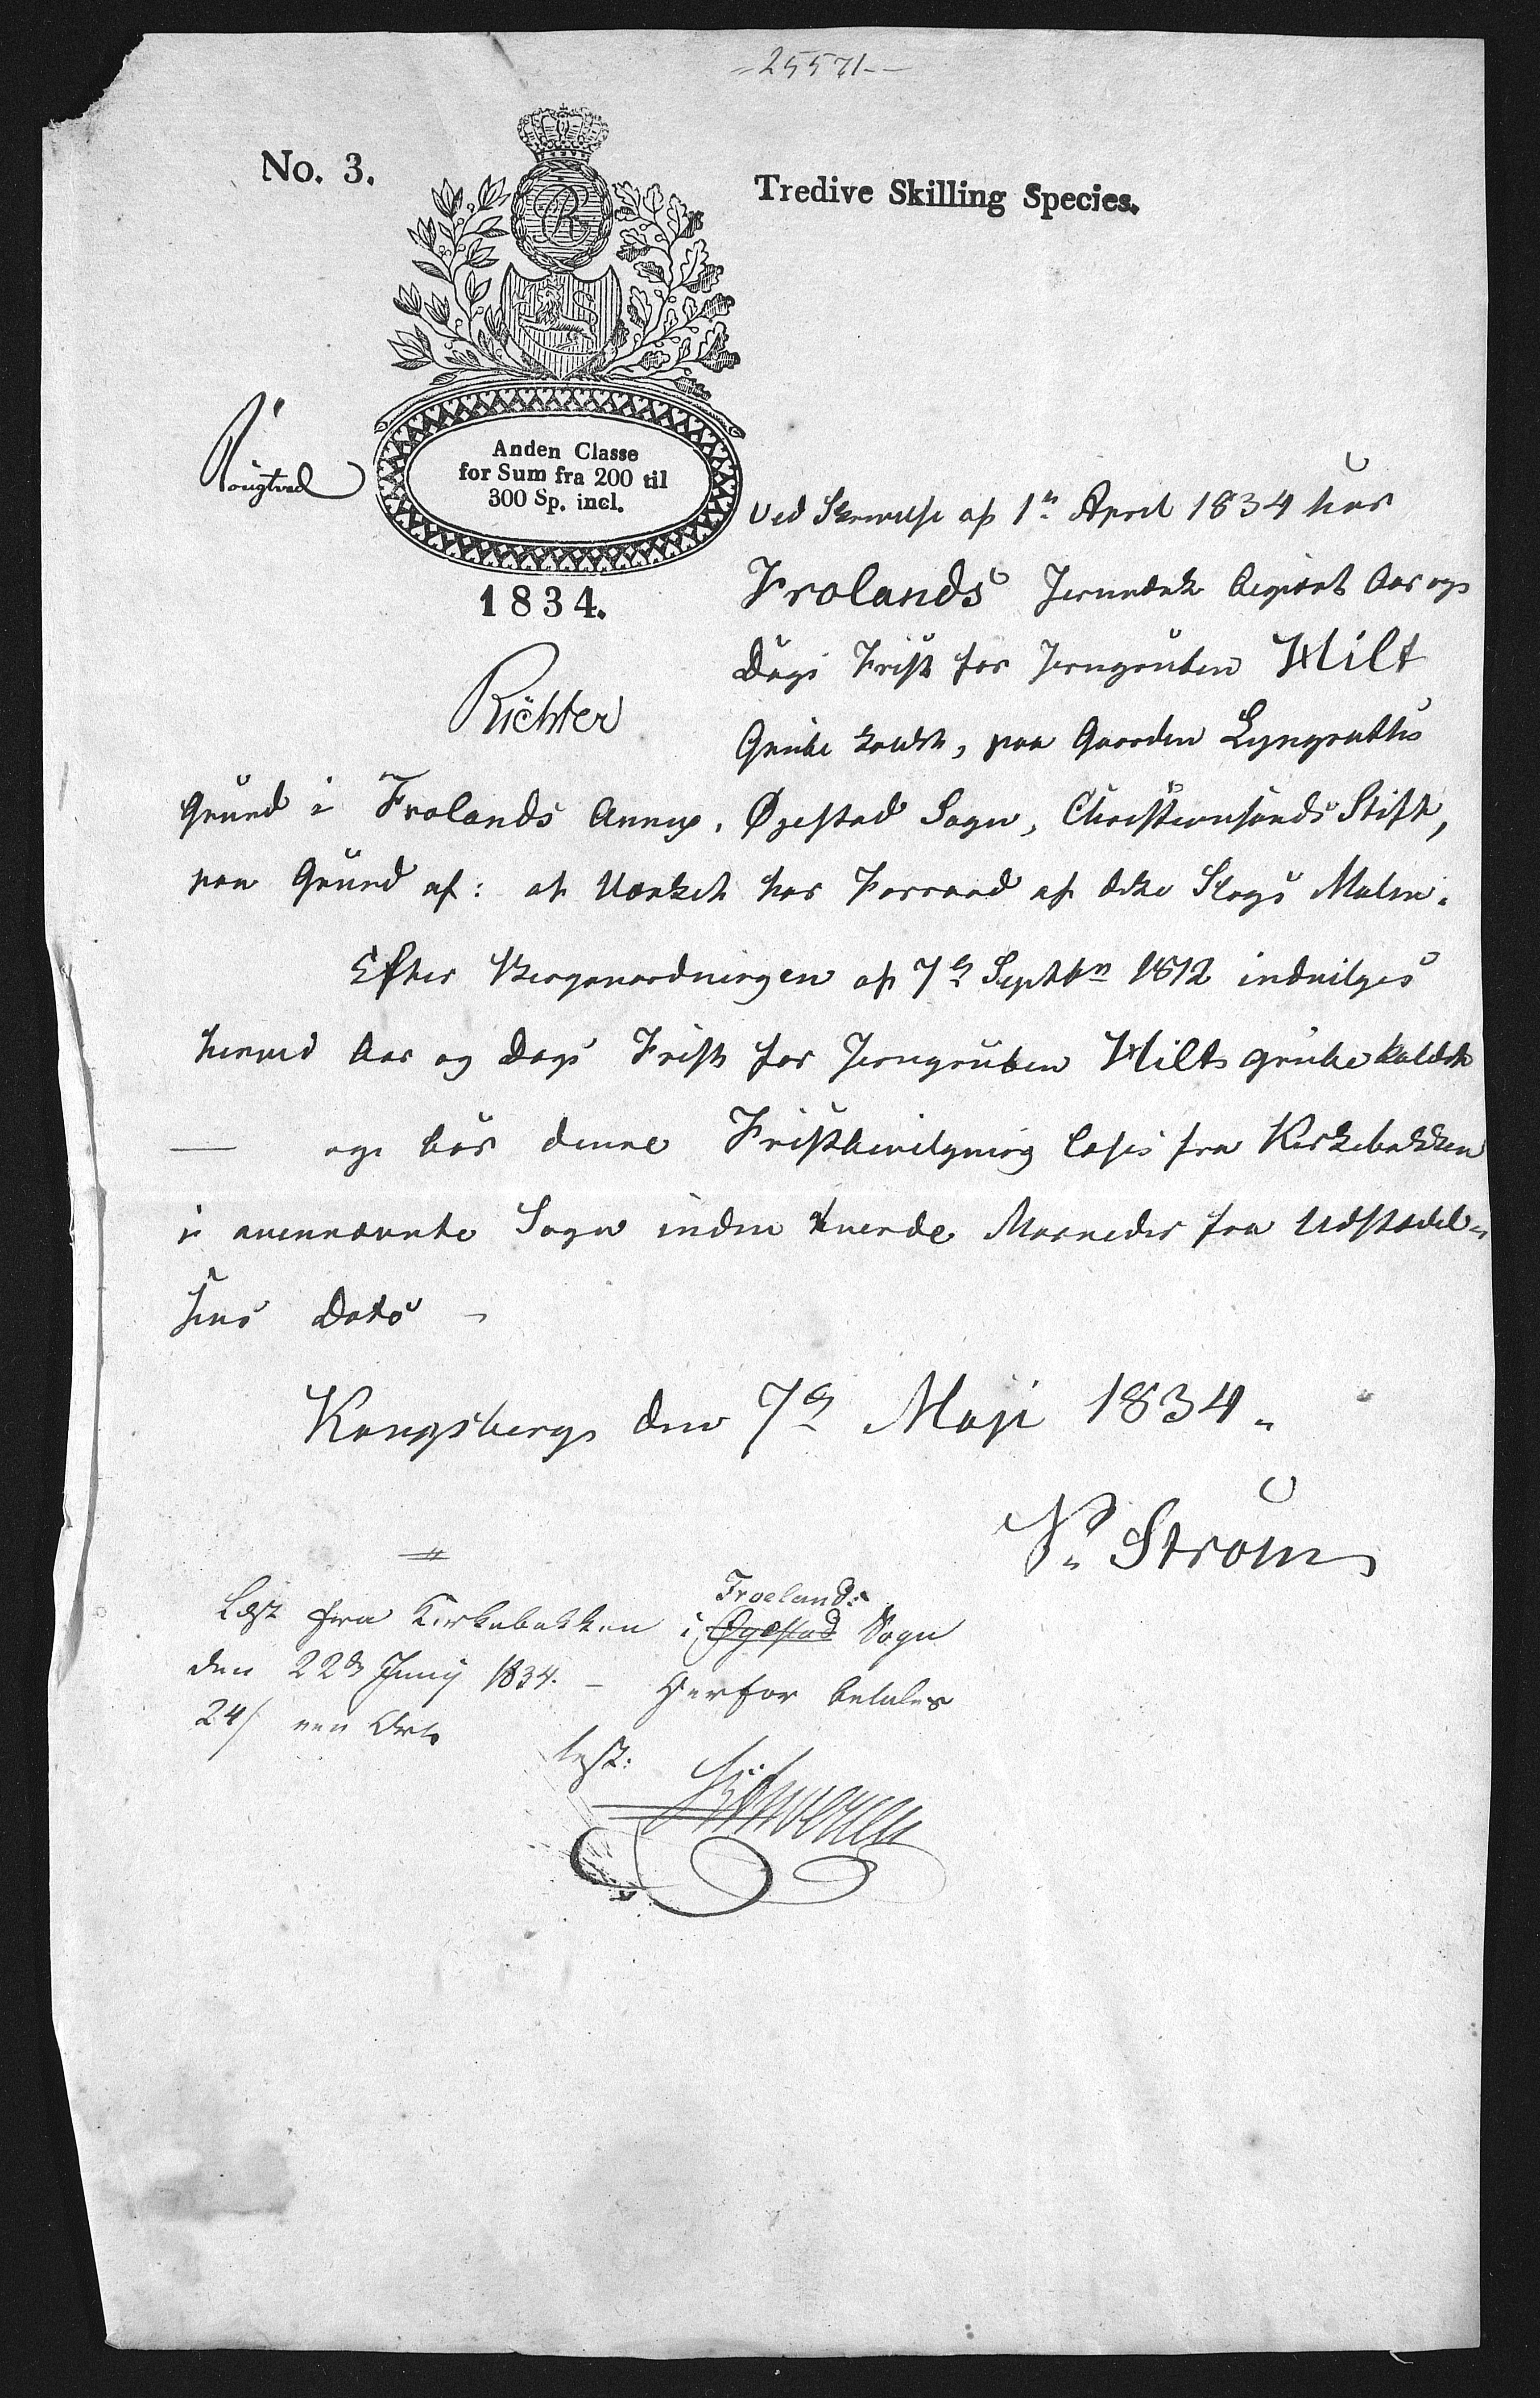 25571
No. 3.
Tredive Skilling Species.
Anden Classe
for Sum fra 200 til
300 Sp. incl.
1834.
Richter
Ved Skrivelse af 1ste April 1834 har
Frolands Jernværk begjært Aar og
Dags Frist for Jerngruben Hilt
Grube kaldet, paa Gaarden Lyngrattis
Grund i Frolands Annex, Øyestad Sogn, Christiansands Stift,
paa Grund af: at Værket har Forraad af dette Slags Malm.
Efter Berganordningen af 7de Septbr 1812 indvilges
herved Aar og Dags Frist for Jerngruben Hilts Grube kaldet
— og bør denne Fristbevilgning læses fra Kirkebakken
i ovennævnte Sogn inden tvende Maaneder fra Udstædel-
sens Dato
Kongsberg den 7de Maji 1834.
Strøm
Læst fra Kirkebakken i Øyestad Froelands Sogn
den 22de Junij 1834. – Herfor betales
24/ een Ort
test: